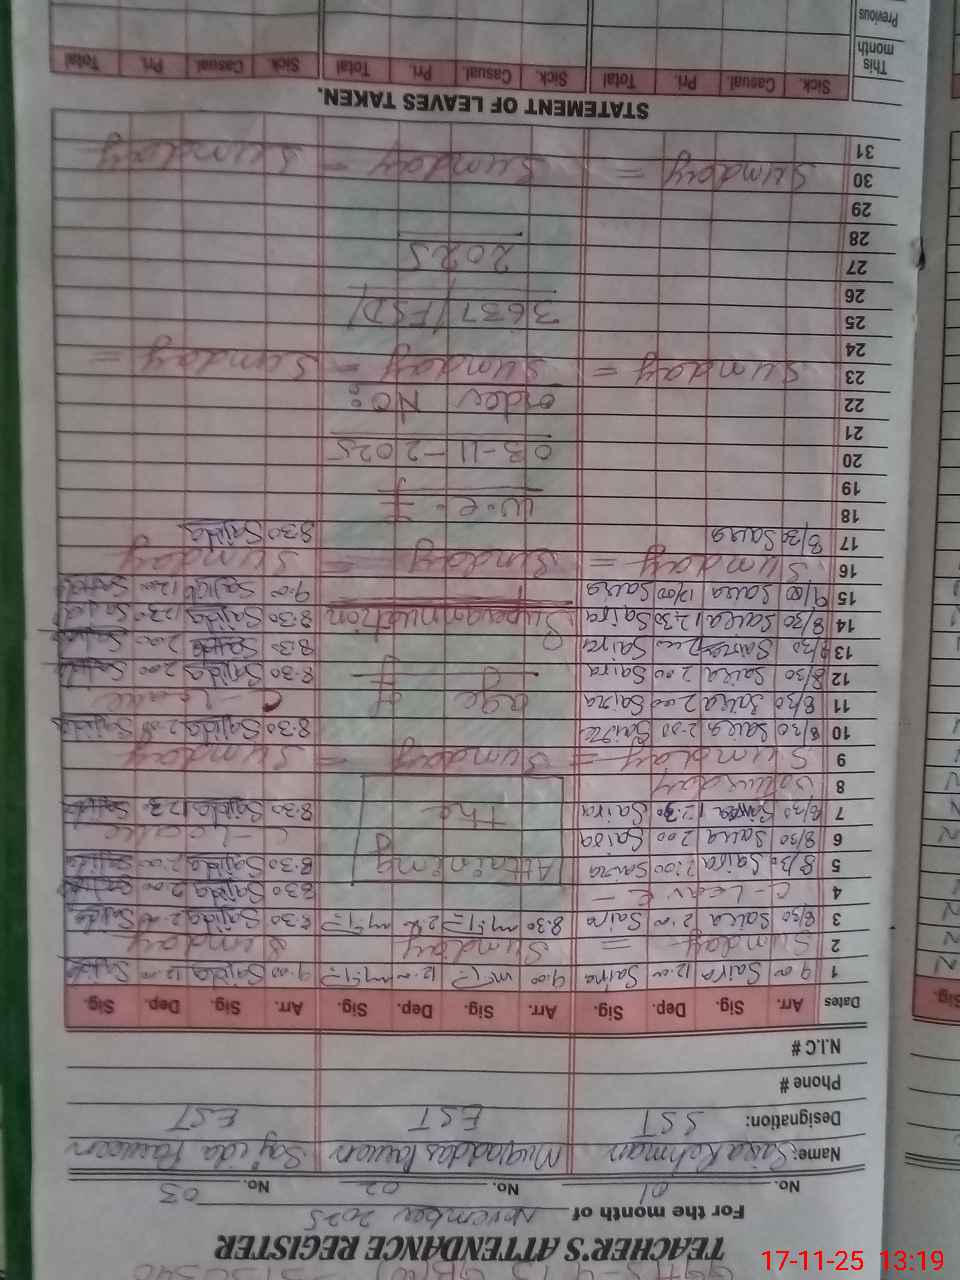 TEACHER'S ATTENDANCE REGISTER
For the month of November 2025
No. 01 No. 02 No. 03
Name: Saira Rehman Muqaddas Parveen Sajida Parveen
Designation: SST EST EST
Phone #
N.I.C #
Dates Arr. Sig. Dep. Sig. Arr. Sig. Dep. Sig. Arr. Sig. Dep. Sig.
1 9:00 Saira 12:00 Saira 9:00 12:00 9:00 Sajida 12:00 Sajida
2 Sunday = Sunday Sunday
3 8/30 Saira 2:00 Saira 8:30 2:00 8:30 Sajida 2:00 Sajida
4 C-Leave - 8:30 Sajida 2:00 Sajida
5 8/30 Saira 2:00 Saira Attaining 8:30 Sajida 2:00 Sajida
6 8/30 Saira 2:00 Saira C-Leave
7 8/30 Saira 12:30 Saira the 8:30 Sajida 12:30 Sajida
8 Saturday
9 Sunday = Sunday = Sunday
10 8/30 Saira 2:00 Saira 8:30 Sajida 2:00 Sajida
11 8/30 Saira 2:00 Saira age of C-Leave
12 8/30 Saira 2:00 Saira 8:30 Sajida 2:00 Sajida
13 8/30 Saira 2:00 Saira 8:30 Sajida 2:00 Sajida
14 8/30 Saira 12:30 Saira Superannuation 8:30 Sajida 12:30 Sajida
15 9/00 Saira 12/00 Saira 9:00 Sajida 12:00 Sajida
16 Sunday = Sunday = Sunday
17 8/30 Saira 8:30 Sajida
18 w.e.f
19
20 03-11-2025
21
22 order No:
23 Sunday = Sunday = Sunday =
24
25 3637/ESD/
26
27 2025
28
29
30 Sunday = Sunday = Sunday
31
STATEMENT OF LEAVES TAKEN.
Sick. Casual. Pri. Total Sick. Casual. Pri. Total Sick. Casual. Pri. Total
This month
Previous
17-11-25 13:19